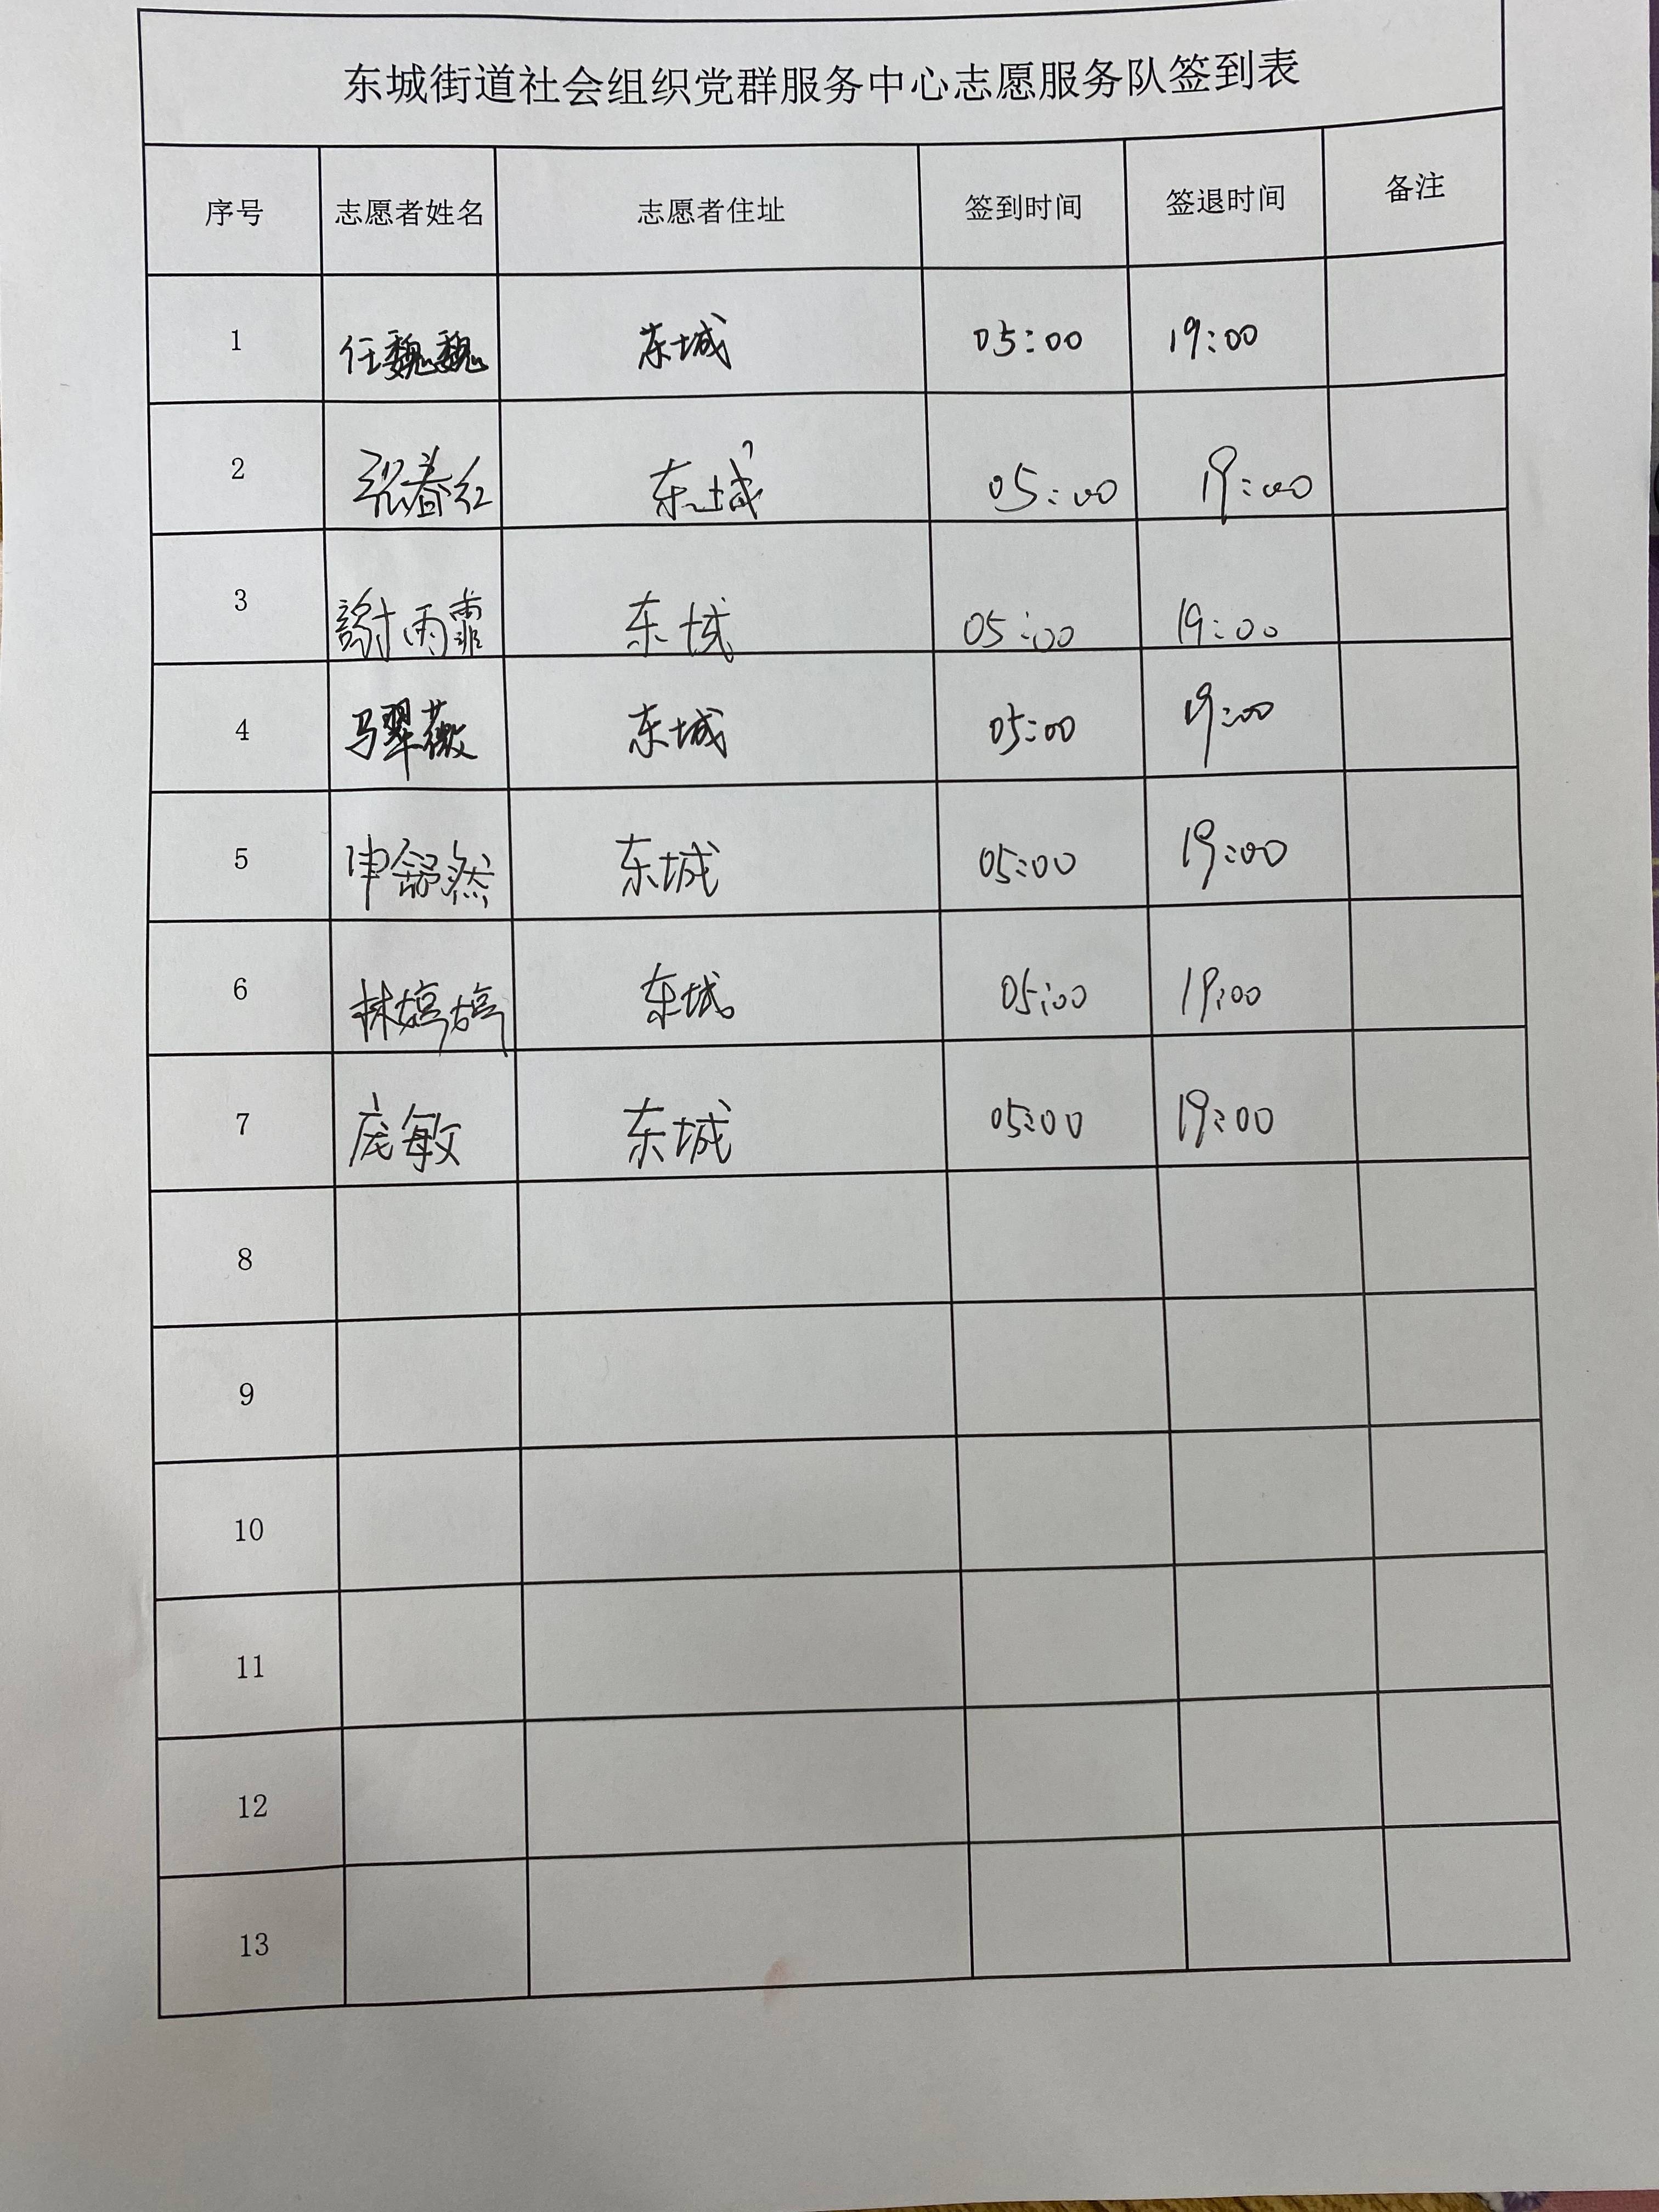 东城街道社会组织党群服务中心志愿服务队签到表
序号 志愿者姓名 志愿者住址 签到时间 签退时间 备注
1 任魏魏 东城 05:00 19:00
2 张春红 东城 05:00 19:00
3 謝雨霏 东城 05:00 19:00
4 马翠薇 东城 05:00 19:00
5 申舒然 东城 05:00 19:00
6 林婷婷 东城 05:00 19:00
7 庞敏 东城 05:00 19:00
8
9
10
11
12
13